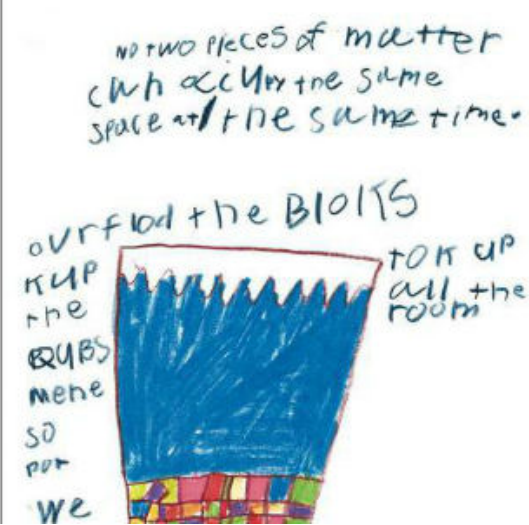 NO TWO PIECES of matter
can occupy the same
space at the same time.
ovrflod the BIOKS
KUP
the
QUBS
mene
so
por
we
TOK UP
all the
room